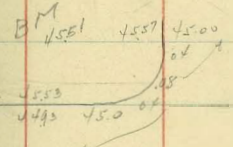 BM
45.51 45.57 45.00
.04
.08
45.53 .04
4493 45.0